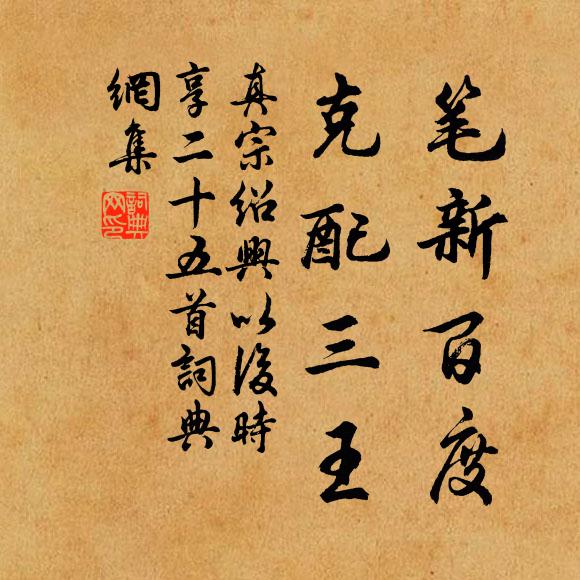 笔新百度
克配三王
真宗绍興以後時
享二十五首詞典
網集
詞典
网印